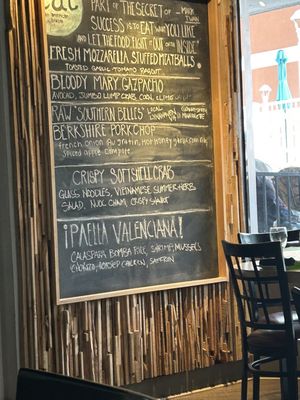 eat
PART OF THE SECRET OF - MARK TWAIN
SUCCESS IS TO EAT WHAT YOU LIKE
AND LET THE FOOD FIGHT IT OUT INSIDE"
FRESH MOZZARELLA STUFFED MEATBALLS
TOASTED GARLIC TOMATO
BLOODY MARY GAZPACHO
AVOCADO, JUMBO LUMP CRAB, CORN,
RAW "SOUTHERN BELLES" LOCAL
BERKSHIRE PORKCHOP
french onion Au gratin, Hot Honey
Spiced apple compote
CRISPY SOFTSHELL CRAB
GLASS NOODLES, VIETNAMESE SUMMER HERB
SALAD, NUOC CHAM, CRISPY SHALLOT
¡PAELLA VALENCIANA!
CALASPARA BOMBA RICE, SHRIMP, MUSSELS
CHORIZO, ROASTED CHICKEN, SAFFRON